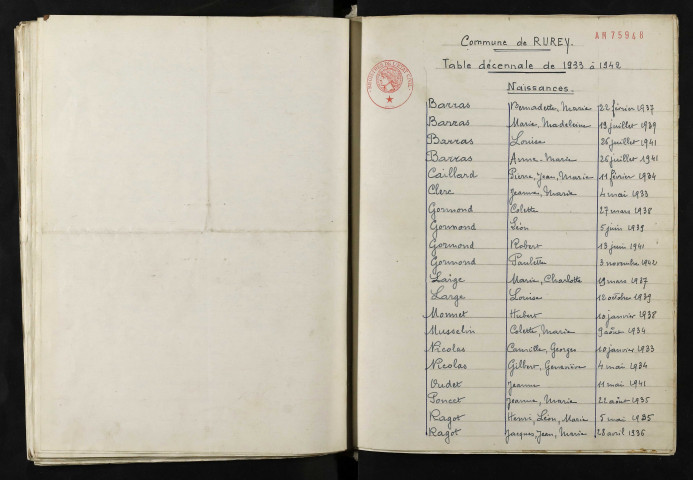 Commune de RUREY.
AM 7594 R
Table décennale de 1933 à 1942
Naissances.
Barras Bernadette, Marie 22 février 1937
Barras Marie, Madeleine 19 juillet 1939
Barras Louise 26 juillet 1941
Barras Anne-Marie 26 juillet 1941
Caillard Pierre, Jean, Marie 11 février 1934
Clerc Jeanne, Marie 4 mai 1933
Gormond Colette 27 mars 1938
Gormond Léon 5 juin 1939
Gormond Robert 13 juin 1941
Gormond Paulette 3 novembre 1942
Large Marie, Charlotte 19 mars 1937
Large Louise 12 octobre 1939
Monnet Hubert 10 janvier 1938
Musselin Colette, Marie 9 août 1934
Nicolas Camille, Georges 10 janvier 1933
Nicolas Gilbert, Geneviève 4 mai 1934
Oudet Jeanne 11 mai 1941
Poncet Jeanne, Marie 22 août 1935
Ragot Henri, Léon, Marie 5 mai 1935
Ragot Jacques, Jean, Marie 28 avril 1936